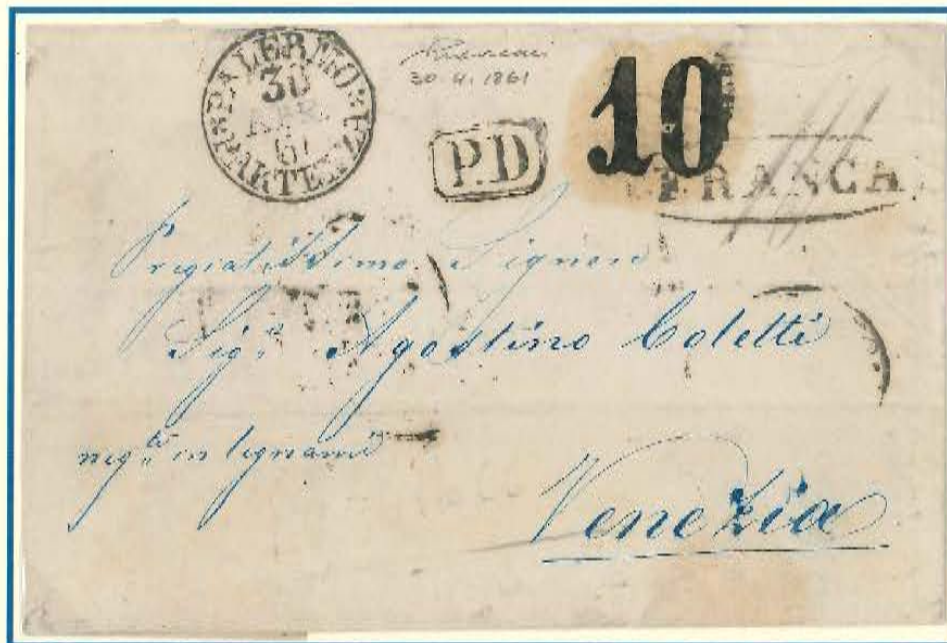 PALERMO
30
APR.
61
PARTENZA
30.4.1861
P.D
10
FRANCA
Pregiatissimo Signore
Sig.r Agostino Coletti
neg.te in legnami
Venezia